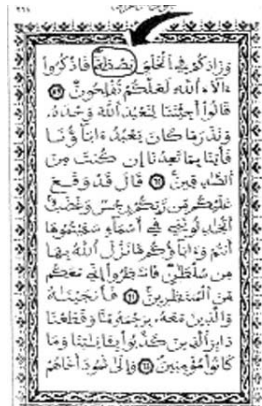 وَزَادَكُمْ فِي الْخَلْقِ بَصْطَةً فَاذْكُرُوا
ءَالَاءَ اللَّهِ لَعَلَّكُمْ تُفْلِحُونَ
قَالُوا أَجِئْتَنَا لِنَعْبُدَ اللَّهَ وَحْدَهُ
وَنَذَرَ مَا كَانَ يَعْبُدُ ءَابَاؤُنَا
فَأْتِنَا بِمَا تَعِدُنَا إِن كُنتَ مِنَ
الصَّٰدِقِينَ قَالَ قَدْ وَقَعَ
عَلَيْكُم مِّن رَّبِّكُمْ رِجْسٌ وَغَضَبٌ
أَتُجَٰدِلُونَنِي فِي أَسْمَاءٍ سَمَّيْتُمُوهَا
أَنتُمْ وَءَابَاؤُكُم مَّا نَزَّلَ اللَّهُ بِهَا
مِن سُلْطَٰنٍ فَانتَظِرُوا إِنِّي مَعَكُم
مِّنَ الْمُنتَظِرِينَ فَأَنجَيْنَٰهُ
وَالَّذِينَ مَعَهُ بِرَحْمَةٍ مِّنَّا وَقَطَعْنَا
دَابِرَ الَّذِينَ كَذَّبُوا بِـَٔايَٰتِنَا وَمَا
كَانُوا مُؤْمِنِينَ وَإِلَىٰ ثَمُودَ أَخَاهُمْ